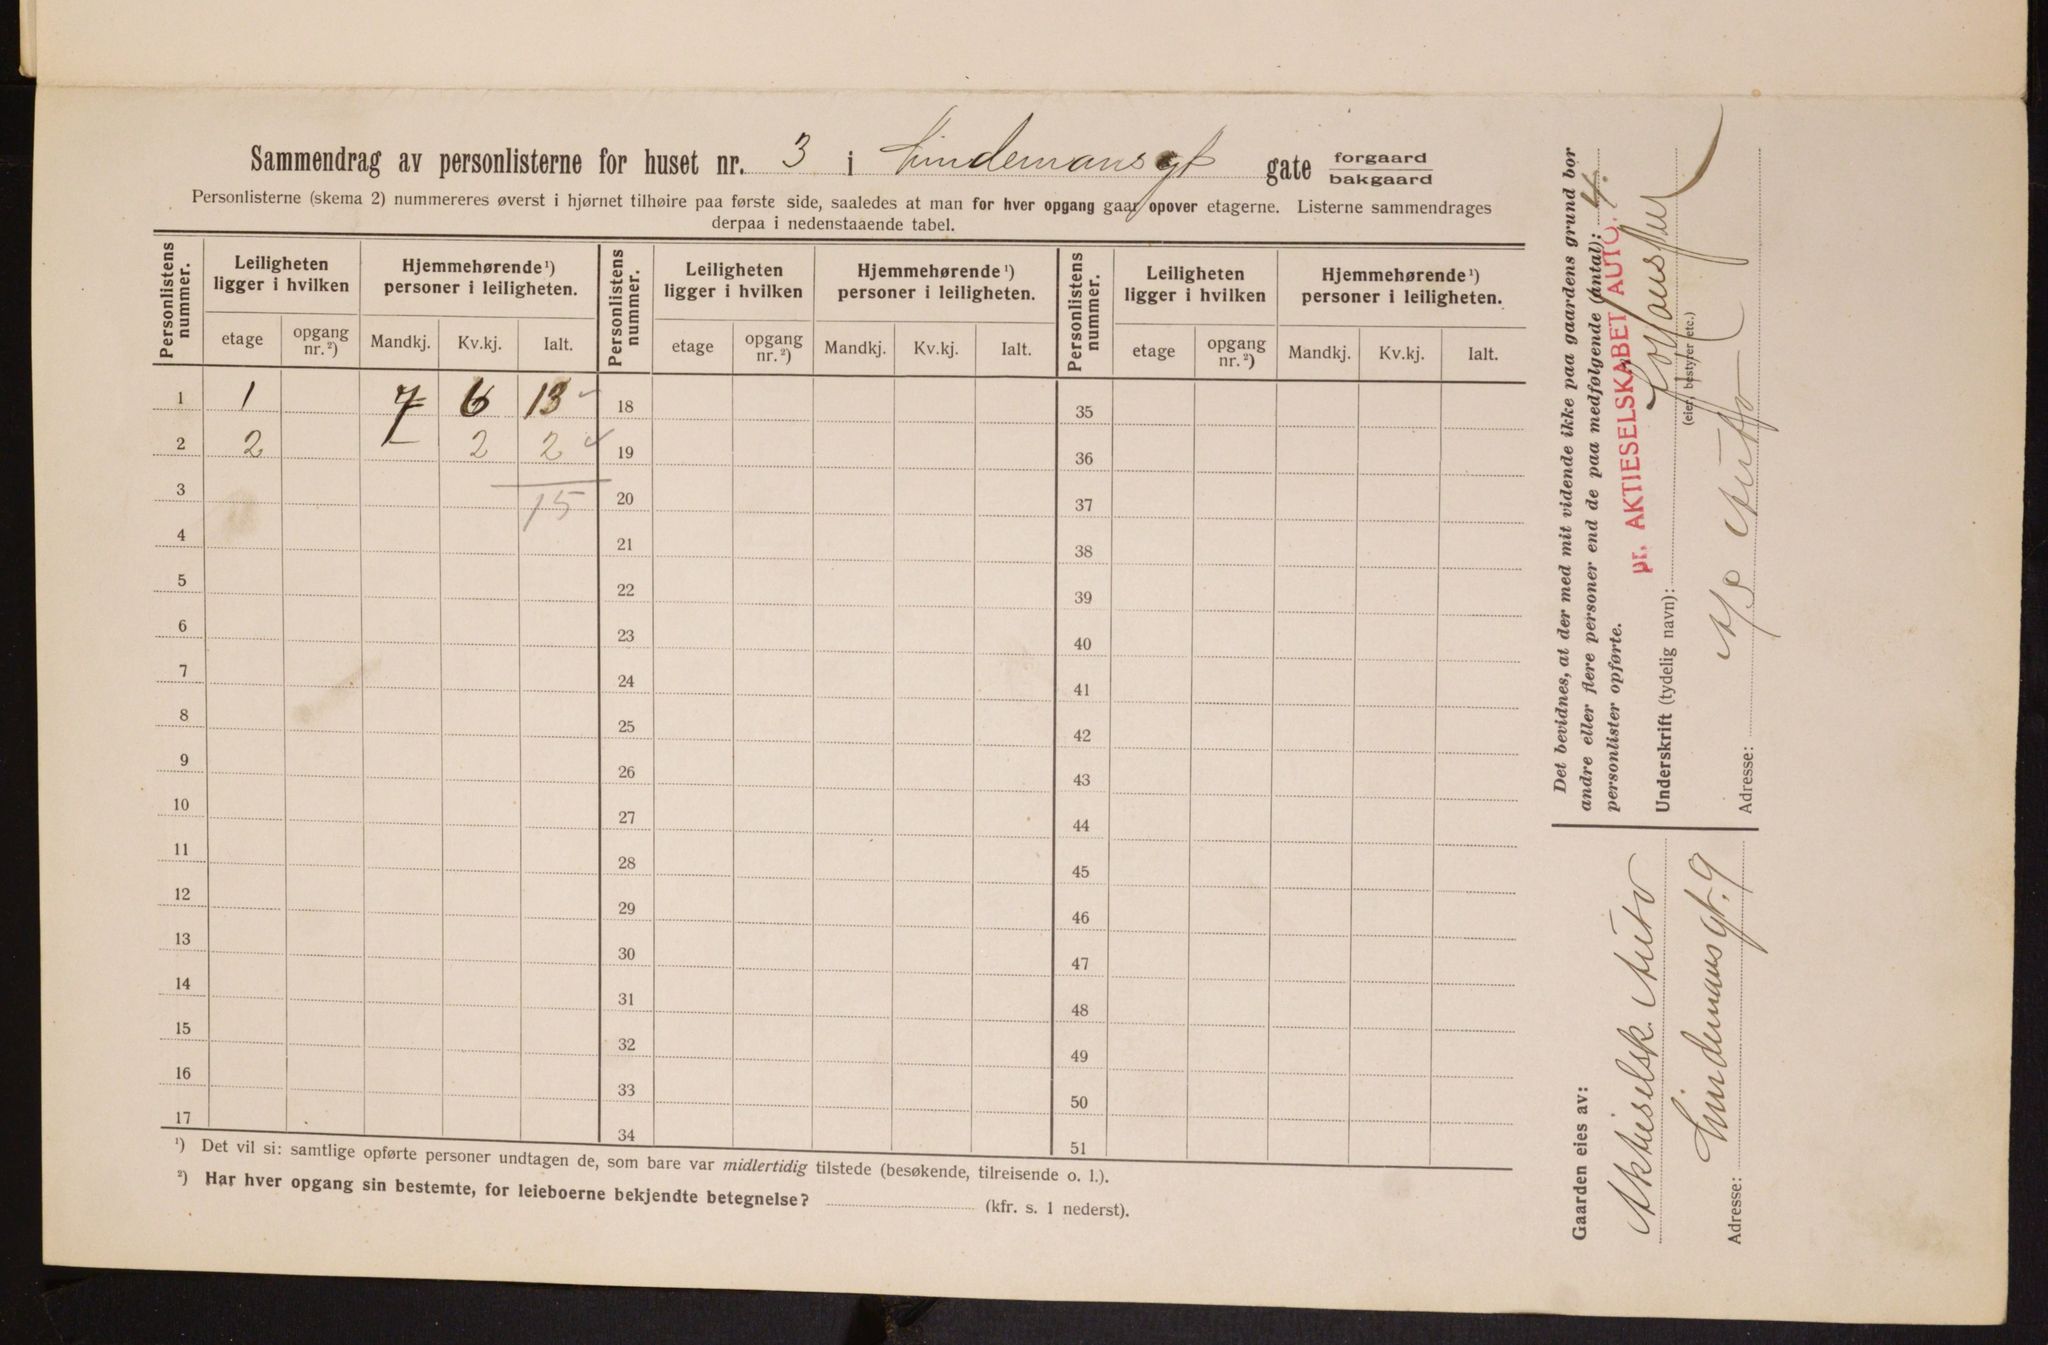 Sammendrag av personlisterne for huset nr. 3 i Lindemansgt gate forgaard
bakgaard
Personlisterne (skema 2) nummereres øverst i hjørnet tilhøire paa første side, saaledes at man for hver opgang gaar opover etagerne. Listerne sammendrages
derpaa i nedenstaaende tabel.
Personlistens nummer. Leiligheten ligger i hvilken Hjemmehørende¹) personer i leiligheten. Personlistens nummer. Leiligheten ligger i hvilken Hjemmehørende¹) personer i leiligheten. Personlistens nummer. Leiligheten ligger i hvilken Hjemmehørende¹) personer i leiligheten.
etage opgang nr.²) Mandkj. Kv.kj. Ialt. etage opgang nr.²) Mandkj. Kv.kj. Ialt. etage opgang nr.²) Mandkj. Kv.kj. Ialt.
1 1 7 6 13 18 35
2 2 – 2 2 19 36
3 15 20 37
4 21 38
5 22 39
6 23 40
7 24 41
8 25 42
9 26 43
10 27 44
11 28 45
12 29 46
13 30 47
14 31 48
15 32 49
16 33 50
17 34 51
¹) Det vil si: samtlige opførte personer undtagen de, som bare var midlertidig tilstede (besøkende, tilreisende o. l.).
²) Har hver opgang sin bestemte, for leieboerne bekjendte betegnelse? (kfr. s. 1 nederst).
Det bevidnes, at der med mit vidende ikke paa gaardens grund bor
andre eller flere personer end de paa medfølgende (antal): 4.
personlister opførte.
pr. AKTIESELSKABET AUTO.
Underskrift (tydelig navn):
(eier, bestyrer etc.)
Adresse: A/S Auto
Gaarden eies av:
Aktieselsk. Auto
Adresse: Lindemansgt. 9